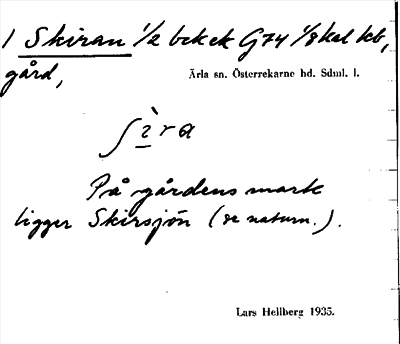 1 Skiran 1/2 bek ek G74 1/8 kal kb,
gård,
Ärla sn. Österrekarne hd. Sdml. l.
ʃì̱ra
På gårdens mark
ligger Skirsjön (se naturn.).
Lars Hellberg 1935.